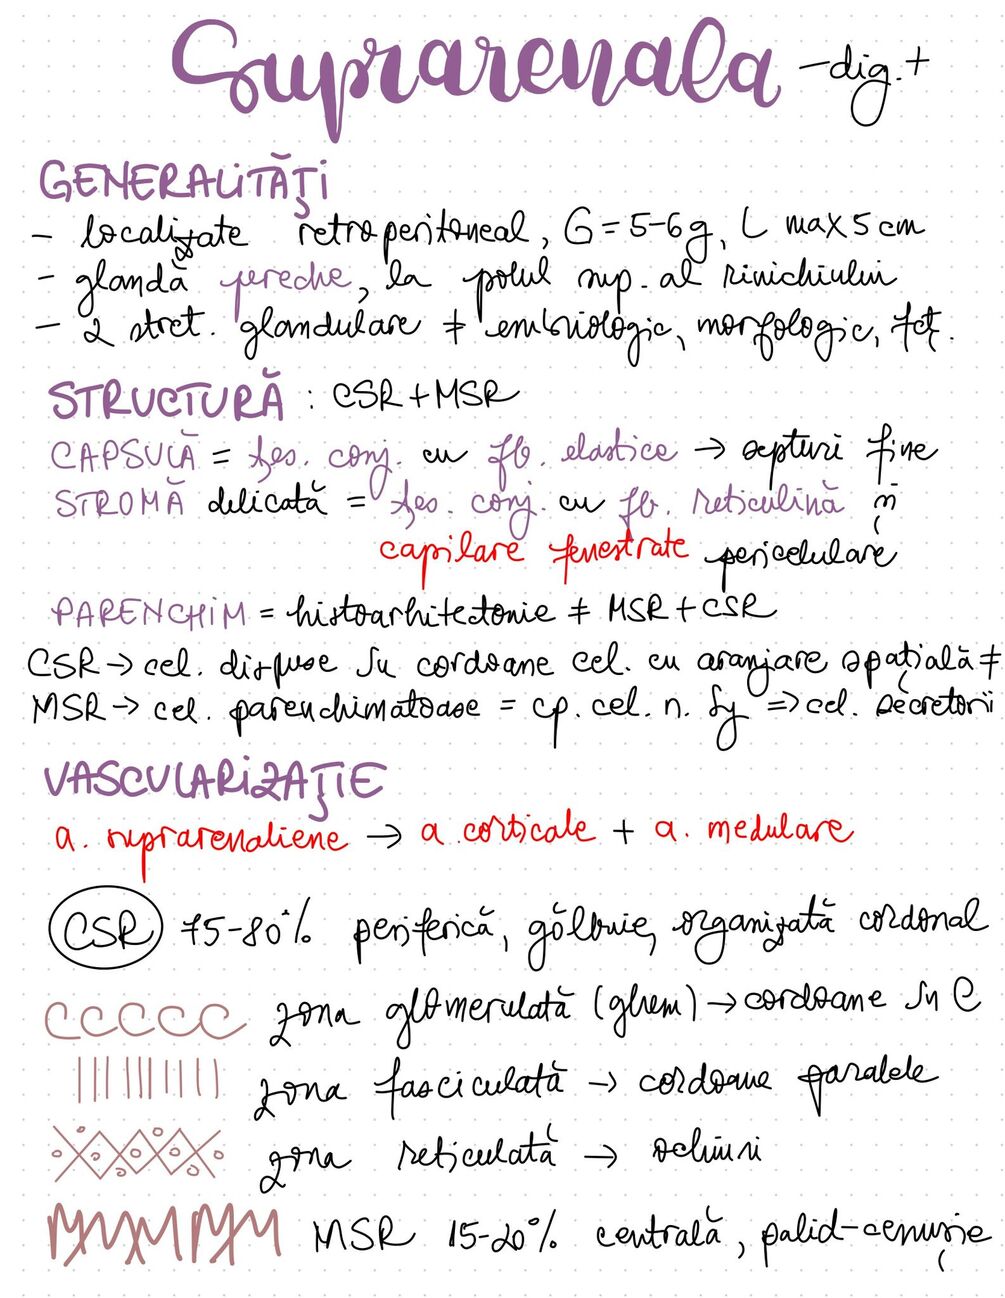 Suprarenala -dig.+
GENERALITĂȚI
- localizate retroperitoneal, G=5-6g, L max 5 cm
- glandă pereche, la polul sup. al rinichiului
- 2 struct. glandulare ≠ embriologic, morfologic, fcț.
STRUCTURĂ : CSR+MSR
CAPSULĂ = țes. conj. cu fb. elastice → septuri fine
STROMĂ delicată = țes. conj. cu fb. reticulină și
capilare fenestrate pericelulare
PARENCHIM = histoarhitectonie ≠ MSR+CSR
CSR → cel. dispuse în cordoane cel. cu aranjare spațială ≠
MSR → cel. parenchimatoase = cp. cel. n. Sy => cel. secretorii
VASCULARIZAȚIE
a. suprarenaliene → a. corticale + a. medulare
CSR 75-80% periferică, gălbuie, organizată cordonal
CCCCC zona glomerulată (ghem) → cordoane în C
zona fasciculată → cordoane paralele
zona reticulată → ochiuri
MSR 15-20% centrală, palid-cenușie